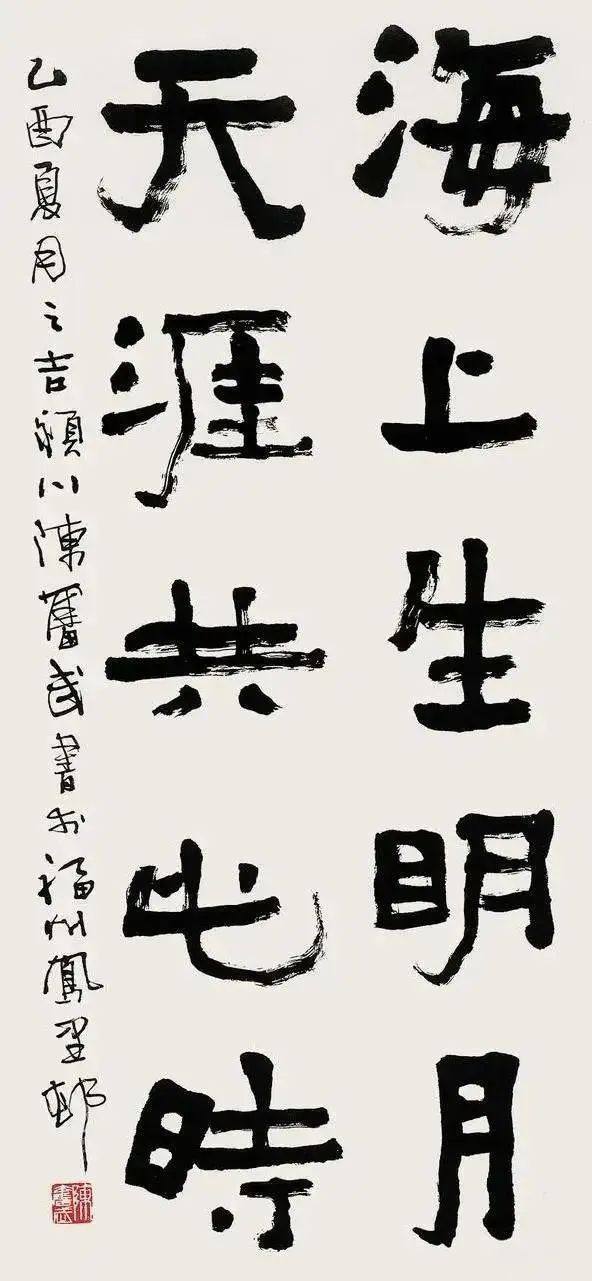 海上生明月
天涯共此時
乙酉夏月之吉穎川陳奮武書於福州鳳邨
陳奮武